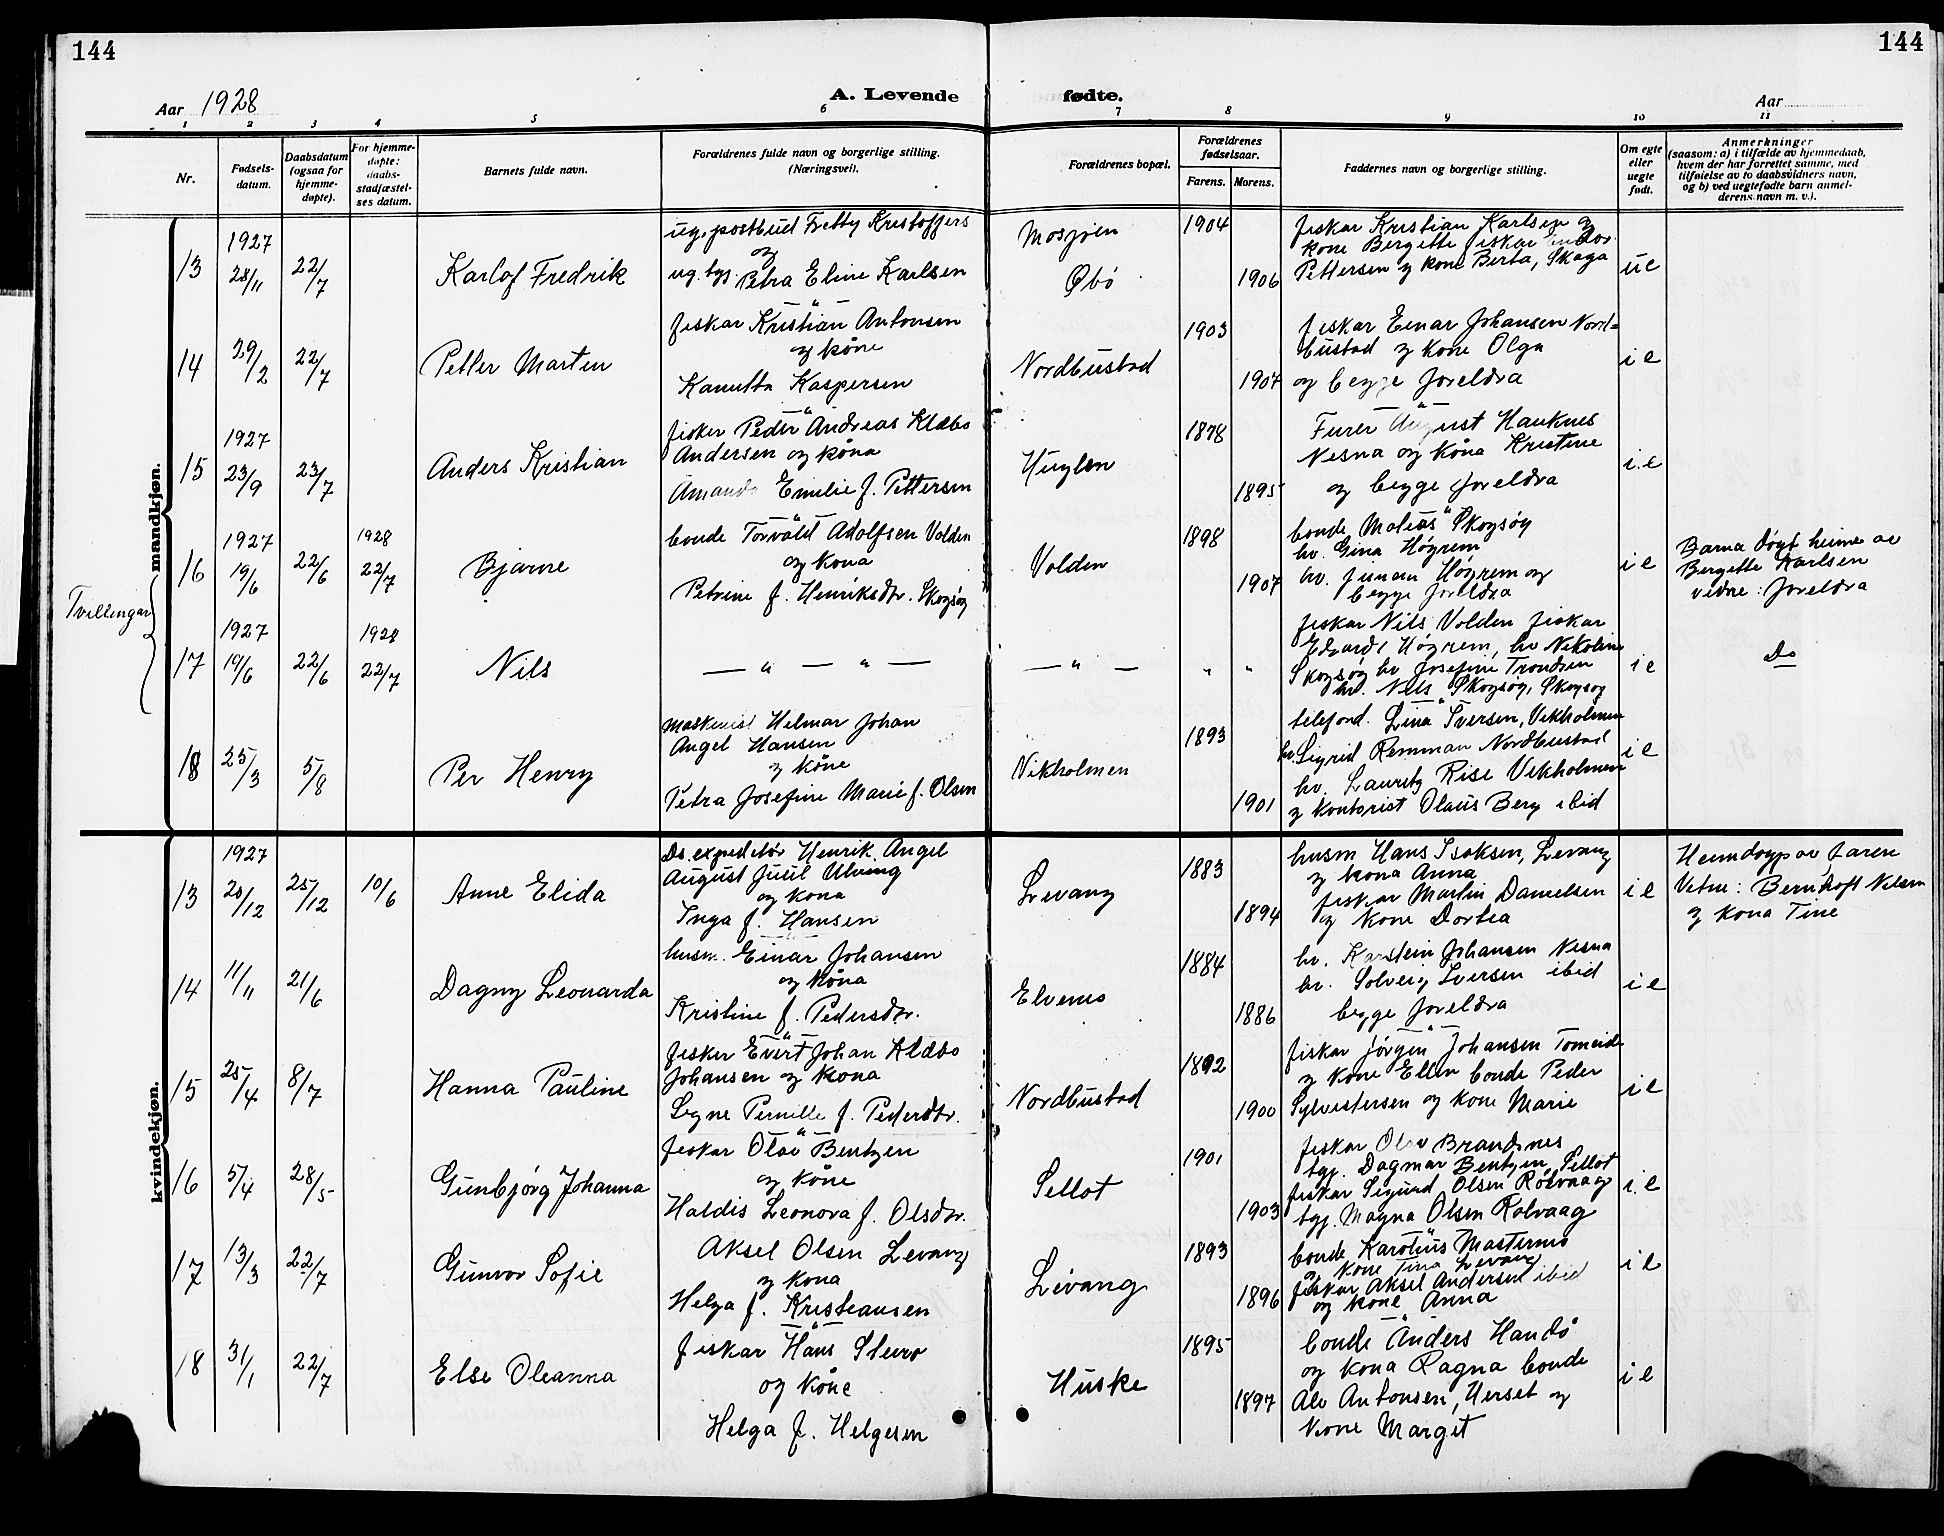 144
144
Aar 1928
A. Levende fødte.
Aar
1 2 3 4 5 6 7 8 9 10 11
Nr.
Fødsels-
datum.
Daabsdatum
(ogsaa for
hjemme-
døpte).
For hjemme-
døpte:
daabs-
stadfæstel-
ses datum.
Barnets fulde navn.
Forældrenes fulde navn og borgerlige stilling.
(Næringsvei).
Forældrenes bopæl.
Forældrenes
fødselsaar.
Farens. Morens.
Faddernes navn og borgerlige stilling.
Om egte
eller
uegte
født.
Anmerkninger
(saasom: a) i tilfælde av hjemmedaab,
hvem der har forrettet samme, med
tilføielse av to daabsvidners navn,
og b) ved uegtefødte barn anmel-
derens navn m. v.).
mandkjøn.
13
1927
28/11
22/7
Karlof Fredrik
ug. postbud Fretty Kristoffers
og
ug. tgj. Petra Eline Karlsen
Mosjøen
Øbø
1904
1906
fiskar Kristian Karlsen og
kone Bergette fiskar
Pettersen og kone Berta, Skaga
ue
14
29/2
22/7
Petter Martin
fiskar Kristian Antonsen
og kone
Kanutta Kaspersen
Nordbustad
1903
1907
fiskar Einar Johansen Nord-
bustad og kone Olga
og begge foreldra
i e
15
1927
23/9
23/7
Anders Kristian
fisker Peder Andreas Klæbo
Andersen og kona
Amanda Emilie f. Pettersen
Huglen
1878
1895
Furer August Hauknes
Nesna og kona Kristine
og begge foreldra
i e
Tvillingar
16
1927
19/6
22/6
1928
22/7
Bjarne
bonde Torvald Adolfsen Volden
og kona
Petrine f. Henriksdtr. Skogsøy
Volden
1898
1907
bonde Matias Skogsøy
hv. Gina Høgrem
hv. Høgrem og
begge foreldra
i e
Barna døypt heime av
Bergette Karlsen
vidne: foreldra
17
1927
19/6
22/6
1928
22/7
Nils
— " — " —
— " —
" "
fiskar Nils Volden fiskar
Edvard Høgrem, hv Nikoline
Skogsøy hv Josefine Trondsen
hv. Nils Skogsøy, Skogsøy
i e
Do
18
25/3
5/8
Per Henry
maskinist Hilmar Johan
Angel Hansen
og kone
Petra Josefine Marie f. Olsen
Vikholmen
1893
1901
telefond. Lina Iversen, Vikholmen
hv. Sigrid Remman Nordbustad
hv. Lauritz Rise Vikholmen
og kontorist Olaus Berg ibid
i e
kvindekjøn.
13
1927
20/12
25/12
10/6
Anne Elida
Ds. expeditør Henrik Angel
August Juul Ulvung
og kona
Inga f. Hansen
Levang
1883
1894
husm Hans Isaksen, Levang
og kona Anna
fiskar Martin Danielsen
og kone Dortea
i e
Heimdøypt av faren
Vitne: Bernhoft Nilsen
og kona Tine
14
11/11
21/6
Dagny Leonarda
husm. Einar Johansen
og kona
Kristine f. Pedersdtr.
Elvenes
1884
1886
hv. Karstein Johansen Nesna
hv. Solveig Iversen ibid
begge foreldra
i e
15
25/4
8/7
Hanna Pauline
fisker Evert Johan Klæbo
Johansen og kona
Signe Pernille f. Pedersdtr.
Nordbustad
1892
1900
fiskar Jørgen Johansen Tomeide
og kone Ellen bonde Peder
Sylvestersen og kone Marie
i e
16
5/4
28/5
Gunbjørg Johanna
fiskar Olav Bentzen
og kone
Haldis Leonora f. Olsdtr.
Sellot
1901
1903
fiskar Olav Brandsnes
tgj. Dagmar Bentzen, Sellot
fiskar Sigurd Olsen Rølvaag
tgj. Magna Olsen Rølvaag
i e
17
13/3
22/7
Gunvor Sofie
Aksel Olsen Levang
og kona
Helga f. Kristiansen
Levang
1893
1896
bonde Karolius Mastermo
og kone Tina Levang
fiskar Aksel Andersen ibid
og kone Anna
i e
18
31/1
22/7
Else Oleanna
fiskar Hans Sturo
og kone
Helga f. Helgesen
Huske
1895
1897
bonde Anders Handø
og kona Ragna bonde
Alv Antonsen, Herset og
kone Margit
i e